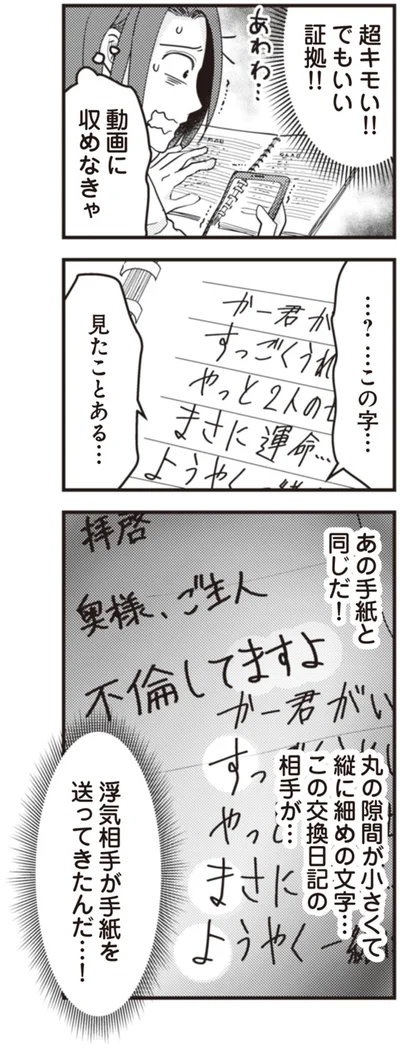 超キモい!!
でもいい
証拠!!
あわわ…
動画に
収めなきゃ
…?…この字…
かー君が
すっごくうれ
やっと2人の
まさに運命…
ようやく一緒
見たことある…
あの手紙と
同じだ！
拝啓
奥様、ご主人
不倫してますよ
かー君がい
すっ
やっ
まさに
ようやく一緒
丸の隙間が小さくて
縦に細めの文字…
この交換日記の
相手が…
浮気相手が手紙を
送ってきたんだ…！